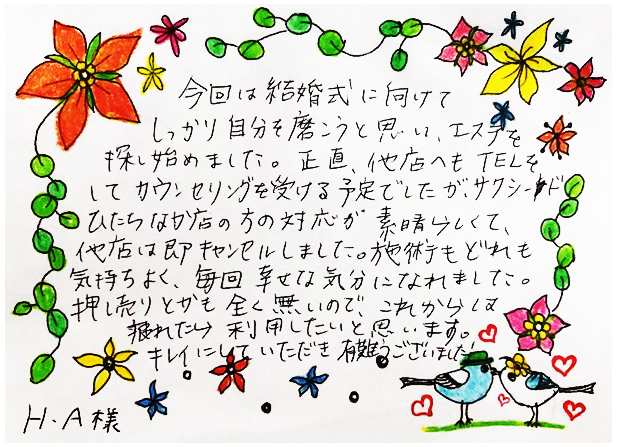 今回は結婚式に向けて
しっかり自分を磨こうと思い、エステを
探し始めました。正直、他店へもTELを
してカウンセリングを受ける予定でしたが、サクシード
ひたちなか店の方の対応が素晴らしくて、
他店は即キャンセルしました。施術もどれも
気持ちよく、毎回幸せな気分になれました。
押し売りとかも全く無いので、これからは
疲れたら利用したいと思います。
キレイにしていただき有難うございました!
H・A様